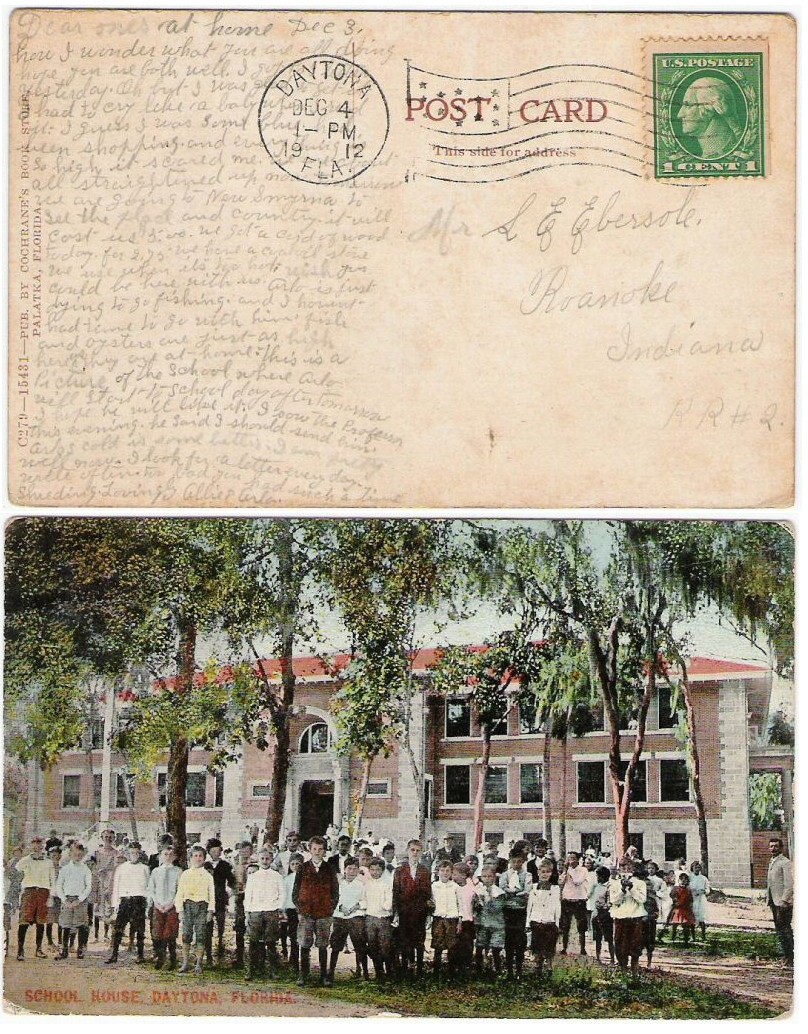 Dear ones at home Dec 3.
how I wonder what you are all doing
hope you are both well. I got
yesterday. Oh but I was
had to cry like a baby
out. I guess I was some blue
been shopping and everything
so high it scared me.
all straightened up now
we are going to New Smyrna to
see the place and country it will
cost us 3.00. we got a cord of wood
today. for 2.75 we have a coal oil stove
we use when its too hot. wish you
could be here with us. Arlo is just
dying to go fishing. and I havent
had time to go with him. fish
and oysters are just as high
here they are at home. This is a
Picture of the School where Arlo
will start to School day after tomorrow
I hope he will like it. I saw the Professor
this evening. he said I should send him.
Arlos cold is some better. I am pretty
well now. I look for a letter every day.
write often. too bad you had such a time
Shreding. Loving, Allie & Arlo.
C279—15431—PUB. BY COCHRANE'S BOOK STORE,
PALATKA, FLORIDA.
DAYTONA
DEC 4
1- PM
1912
FLA.
POST CARD
This side for address
U.S. POSTAGE
1 CENT 1
Mr L E Ebersole.
Roanoke
Indiana
RR # 2.
SCHOOL HOUSE, DAYTONA, FLORIDA.